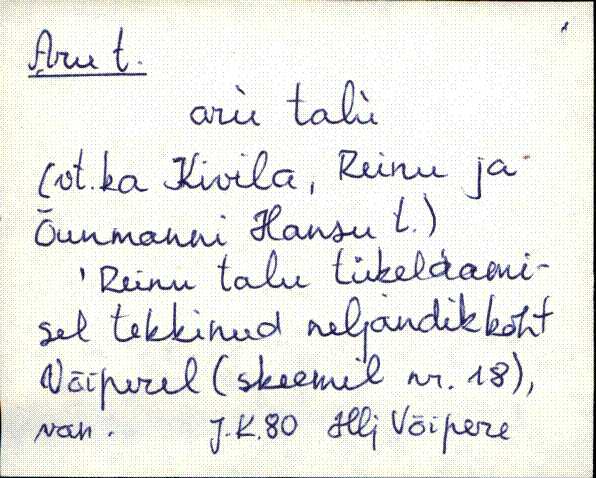 Aru t.
aru talu
(vt. ka Kivila, Reinu ja
Õunmanni Hansu t.)
'Reinu talu tükeldami-
sel tekkinud neljandikkoht
Võiperel (skeemil nr. 18),
van. J.K.80 Hlj Võipere